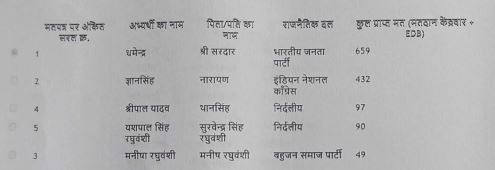 मतपत्र पर अंकित अभ्यर्थी का नाम पिता/पति का राजनैतिक दल कुल प्राप्त मत (मतदान केंद्रवार +
सरल क्र. नाम EDB)
1 धमेन्द्र श्री सरदार भारतीय जनता 659
पार्टी
2 ज्ञानसिंह नारायण इंडियन नेशनल 432
काँग्रेस
4 श्रीपाल यादव थानसिंह निर्दलीय 97
5 यशपाल सिंह सुरवेन्द्र सिंह निर्दलीय 90
रघुवंशी रघुवंशी
3 मनीषा रघुवंशी मनीष रघुवंशी बहुजन समाज पार्टी 49